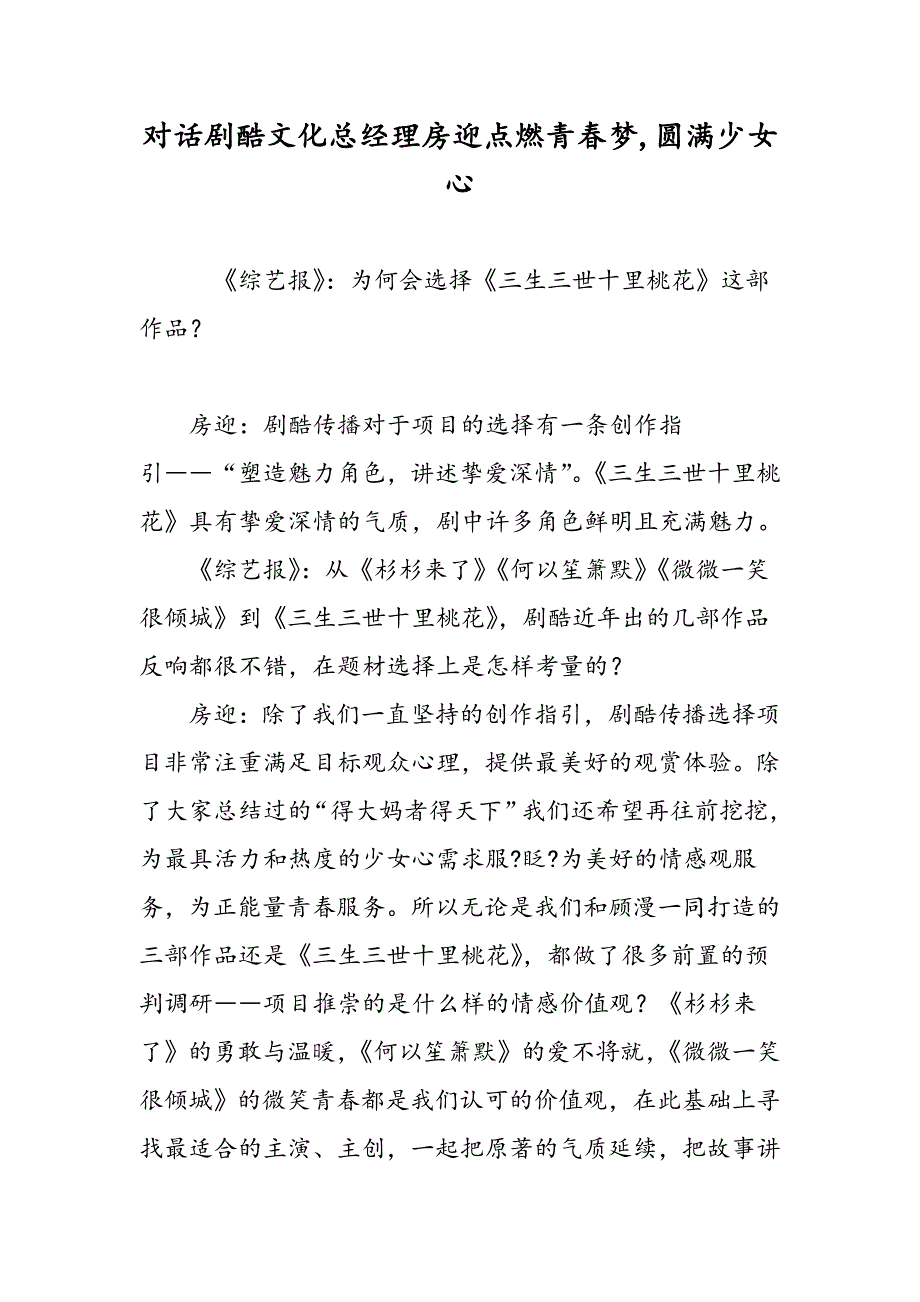 对话剧酷文化总经理房迎点燃青春梦,圆满少女
心
《综艺报》：为何会选择《三生三世十里桃花》这部
作品？
房迎：剧酷传播对于项目的选择有一条创作指
引——“塑造魅力角色，讲述挚爱深情”。《三生三世十里桃
花》具有挚爱深情的气质，剧中许多角色鲜明且充满魅力。
《综艺报》：从《杉杉来了》《何以笙箫默》《微微一笑
很倾城》到《三生三世十里桃花》，剧酷近年出的几部作品
反响都很不错，在题材选择上是怎样考量的？
房迎：除了我们一直坚持的创作指引，剧酷传播选择项
目非常注重满足目标观众心理，提供最美好的观赏体验。除
了大家总结过的“得大妈者得天下”我们还希望再往前挖挖，
为最具活力和热度的少女心需求服?眨?为美好的情感观服
务，为正能量青春服务。所以无论是我们和顾漫一同打造的
三部作品还是《三生三世十里桃花》，都做了很多前置的预
判调研——项目推崇的是什么样的情感价值观？《杉杉来
了》的勇敢与温暖，《何以笙箫默》的爱不将就，《微微一笑
很倾城》的微笑青春都是我们认可的价值观，在此基础上寻
找最适合的主演、主创，一起把原著的气质延续，把故事讲